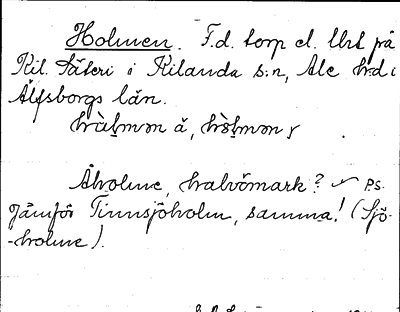 Holmen. F.d. torp el. lht på
Kil. Säteri i Kilanda s:n, Ale hrd i
Älfsborgs län.
å,
Åholme, halvömark? PS.
Jämför Tinnsjöholm, samma! (Sjö-
-holme).